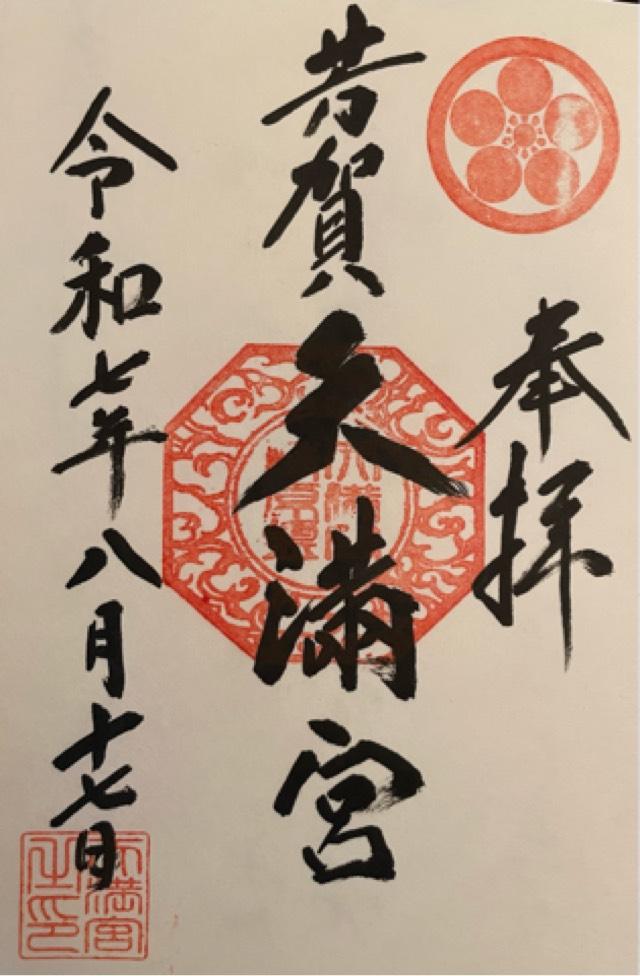 奉拝
芳賀天満宮
令和七年八月十七日
天満宮
之印